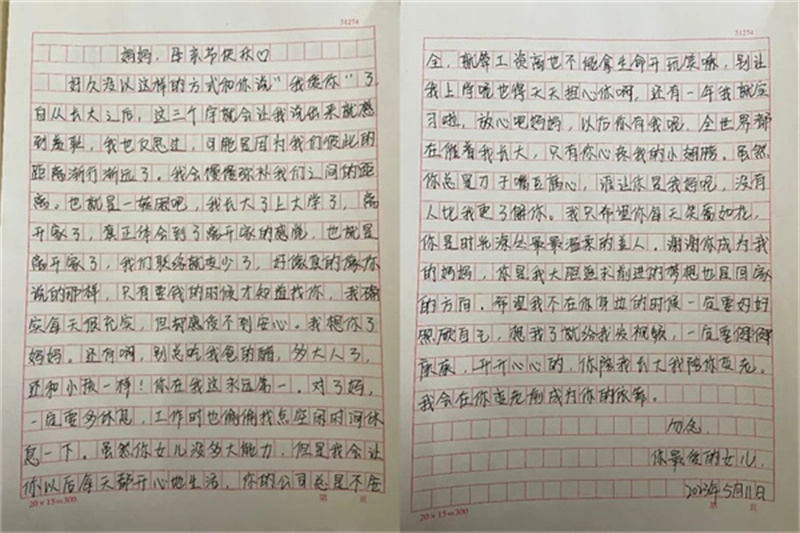 51274
妈妈，母亲节快乐♡
好久没以这样的方式和你说“我爱你”了，
自从长大之后，这三个字就会让我说出来就感
到羞耻，我也反思过，可能是因为我们彼此的
距离渐行渐远了。我会慢慢弥补我们之间的距
离。也就是一转眼吧，我长大了上大学了，离
开家了，真正体会到了离开家的感觉，也就是
离开家了，我们联络就变少了，好像真的像你
说的那样，只有要钱的时候才知道找你，我确
实每天很充实，但却感受不到安心。我想你了
妈妈。还有啊，别总吃我爸的醋，多大人了，
还和小孩一样！你在我这永远第一。对了妈，
一定要多休息，工作时也偷偷找点空闲时间休
息一下。虽然你女儿没多大能力，但是我会让
你以后每天都开心地生活，你的公司总是不安
20×15=300
第 页
51274
全，就算工资高也不能拿生命开玩笑嘛，别让
我上学呢也得天天担心你啊，还有一年我就实
习啦，放心吧妈妈，以后你有我呢，全世界都
在催着我长大，只有你心疼我的小翅膀。虽然
你总是刀子嘴豆腐心，谁让你是我妈呢，没有
人比我更了解你。我只希望你每天笑靥如花，
你是时光深处最最温柔的美人。谢谢你成为我
的妈妈，你是我大胆追求前进的梦想也是回家
的方向。希望我不在你身边的时候一定要好好
照顾自己，想我了就给我发视频，一定要健健
康康，开开心心的，你陪我长大我陪你变老。
我会在你变老前成为你的依靠。
勿念
你最爱的女儿
2023年5月11日
20×15=300
第 页